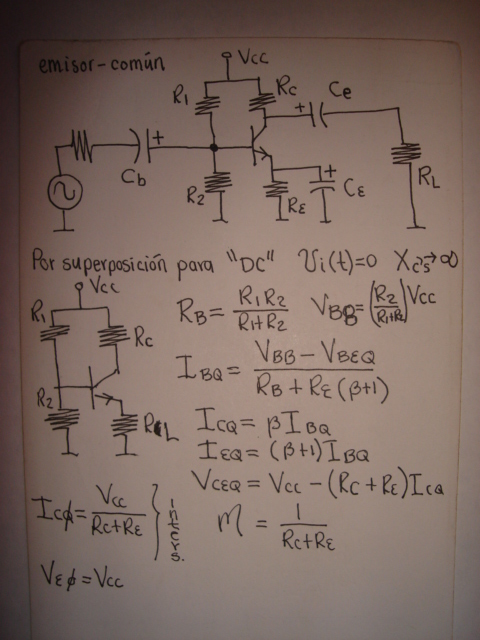 emisor-común
Vcc
R1 Rc + Ce
+
Cb R2 RE + CE RL
Por superposición para "DC" Vi(t)=0 Xc's→∞
Vcc
R1 Rc
R2
RB = R1R2 / R1+R2 VBB = (R2 / R1+R2) Vcc
IBQ = VBB - VBEQ / RB + RE (β+1)
ICQ = β IBQ
IEQ = (β+1) IBQ
VCEQ = Vcc - (Rc + RE) ICQ
ICφ = Vcc / Rc+RE } inters.
m = 1 / Rc+RE
VEφ = Vcc